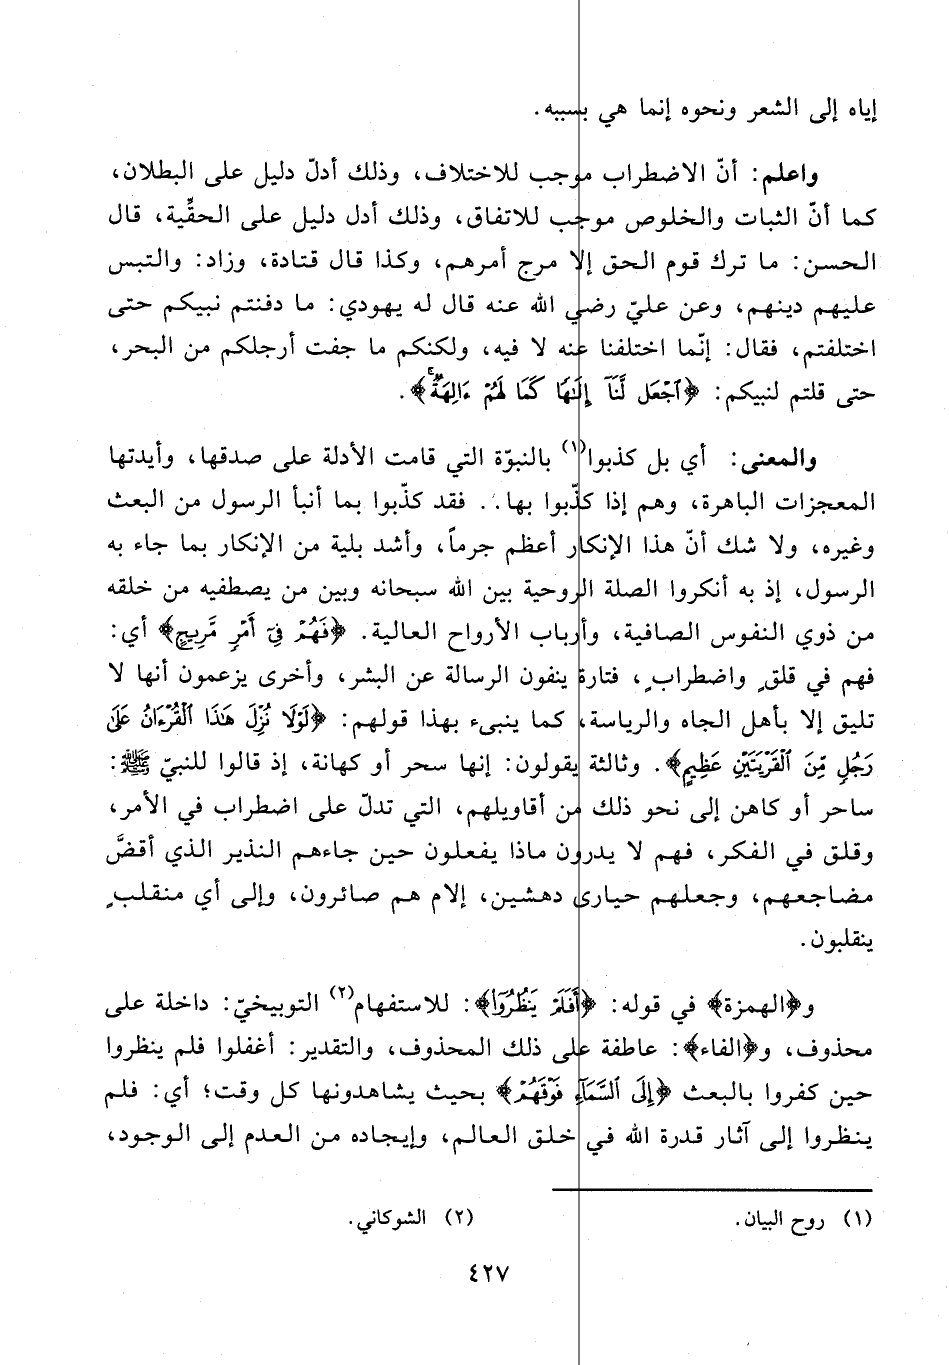 إياه إلى الشعر ونحوه إنما هي بسببه.
واعلم: أنّ الاضطراب موجب للاختلاف، وذلك أدلّ دليل على البطلان،
كما أنّ الثبات والخلوص موجب للاتفاق، وذلك أدل دليل على الحقِّية، قال
الحسن: ما ترك قوم الحق إلا مرج أمرهم، وكذا قال قتادة، وزاد: والتبس
عليهم دينهم، وعن عليّ رضي الله عنه قال له يهودي: ما دفنتم نبيكم حتى
اختلفتم، فقال: إنّما اختلفنا عنه لا فيه، ولكنكم ما جفت أرجلكم من البحر،
حتى قلتم لنبيكم: ﴿ٱجْعَل لَّنَآ إِلَٰهًا كَمَا لَهُمْ ءَالِهَةٌ ۚ﴾.
والمعنى: أي بل كذبوا(١) بالنبوّة التي قامت الأدلة على صدقها، وأيدتها
المعجزات الباهرة، وهم إذا كذّبوا بها.. فقد كذّبوا بما أنبأ الرسول من البعث
وغيره، ولا شك أنّ هذا الإنكار أعظم جرماً، وأشد بلية من الإنكار بما جاء به
الرسول، إذ به أنكروا الصلة الروحية بين الله سبحانه وبين من يصطفيه من خلقه
من ذوي النفوس الصافية، وأرباب الأرواح العالية. ﴿فَهُمْ فِىٓ أَمْرٍ مَّرِيجٍ﴾ أي:
فهم في قلقٍ واضطرابٍ، فتارة ينفون الرسالة عن البشر، وأخرى يزعمون أنها لا
تليق إلا بأهل الجاه والرياسة، كما ينبىء بهذا قولهم: ﴿لَوْلَا نُزِّلَ هَٰذَا ٱلْقُرْءَانُ عَلَىٰ
رَجُلٍ مِّنَ ٱلْقَرْيَتَيْنِ عَظِيمٍ﴾. وثالثة يقولون: إنها سحر أو كهانة، إذ قالوا للنبيّ ﷺ:
ساحر أو كاهن إلى نحو ذلك من أقاويلهم، التي تدلّ على اضطراب في الأمر،
وقلق في الفكر، فهم لا يدرون ماذا يفعلون حين جاءهم النذير الذي أقضَّ
مضاجعهم، وجعلهم حيارى دهشين، إلام هم صائرون، وإلى أي منقلبٍ
ينقلبون.
و﴿الهمزة﴾ في قوله: ﴿أَفَلَمْ يَنظُرُوٓا۟﴾: للاستفهام(٢) التوبيخيّ: داخلة على
محذوف، و﴿الفاء﴾: عاطفة على ذلك المحذوف، والتقدير: أغفلوا فلم ينظروا
حين كفروا بالبعث ﴿إِلَى ٱلسَّمَآءِ فَوْقَهُمْ﴾ بحيث يشاهدونها كل وقت؛ أي: فلم
ينظروا إلى آثار قدرة الله في خلق العالم، وإيجاده من العدم إلى الوجود،
(١) روح البيان. (٢) الشوكاني.
٤٢٧